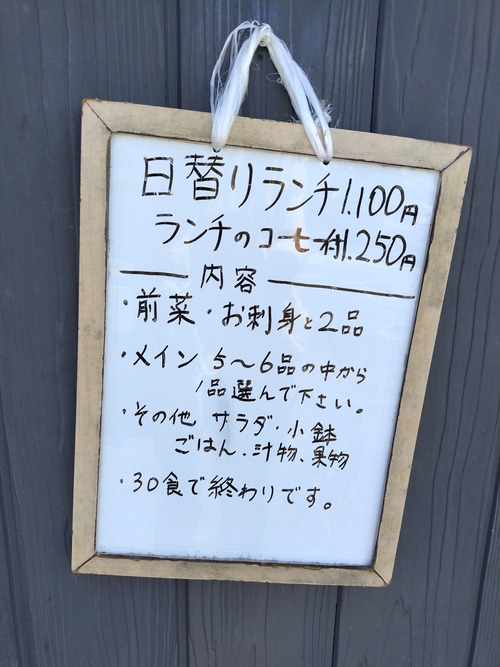 日替りランチ1.100円
ランチのコーヒー付1.250円
内容
・前菜・お刺身と2品
・メイン 5〜6品の中から
1品選んで下さい。
・その他 サラダ・小鉢
ごはん、汁物、果物
・30食で終わりです。